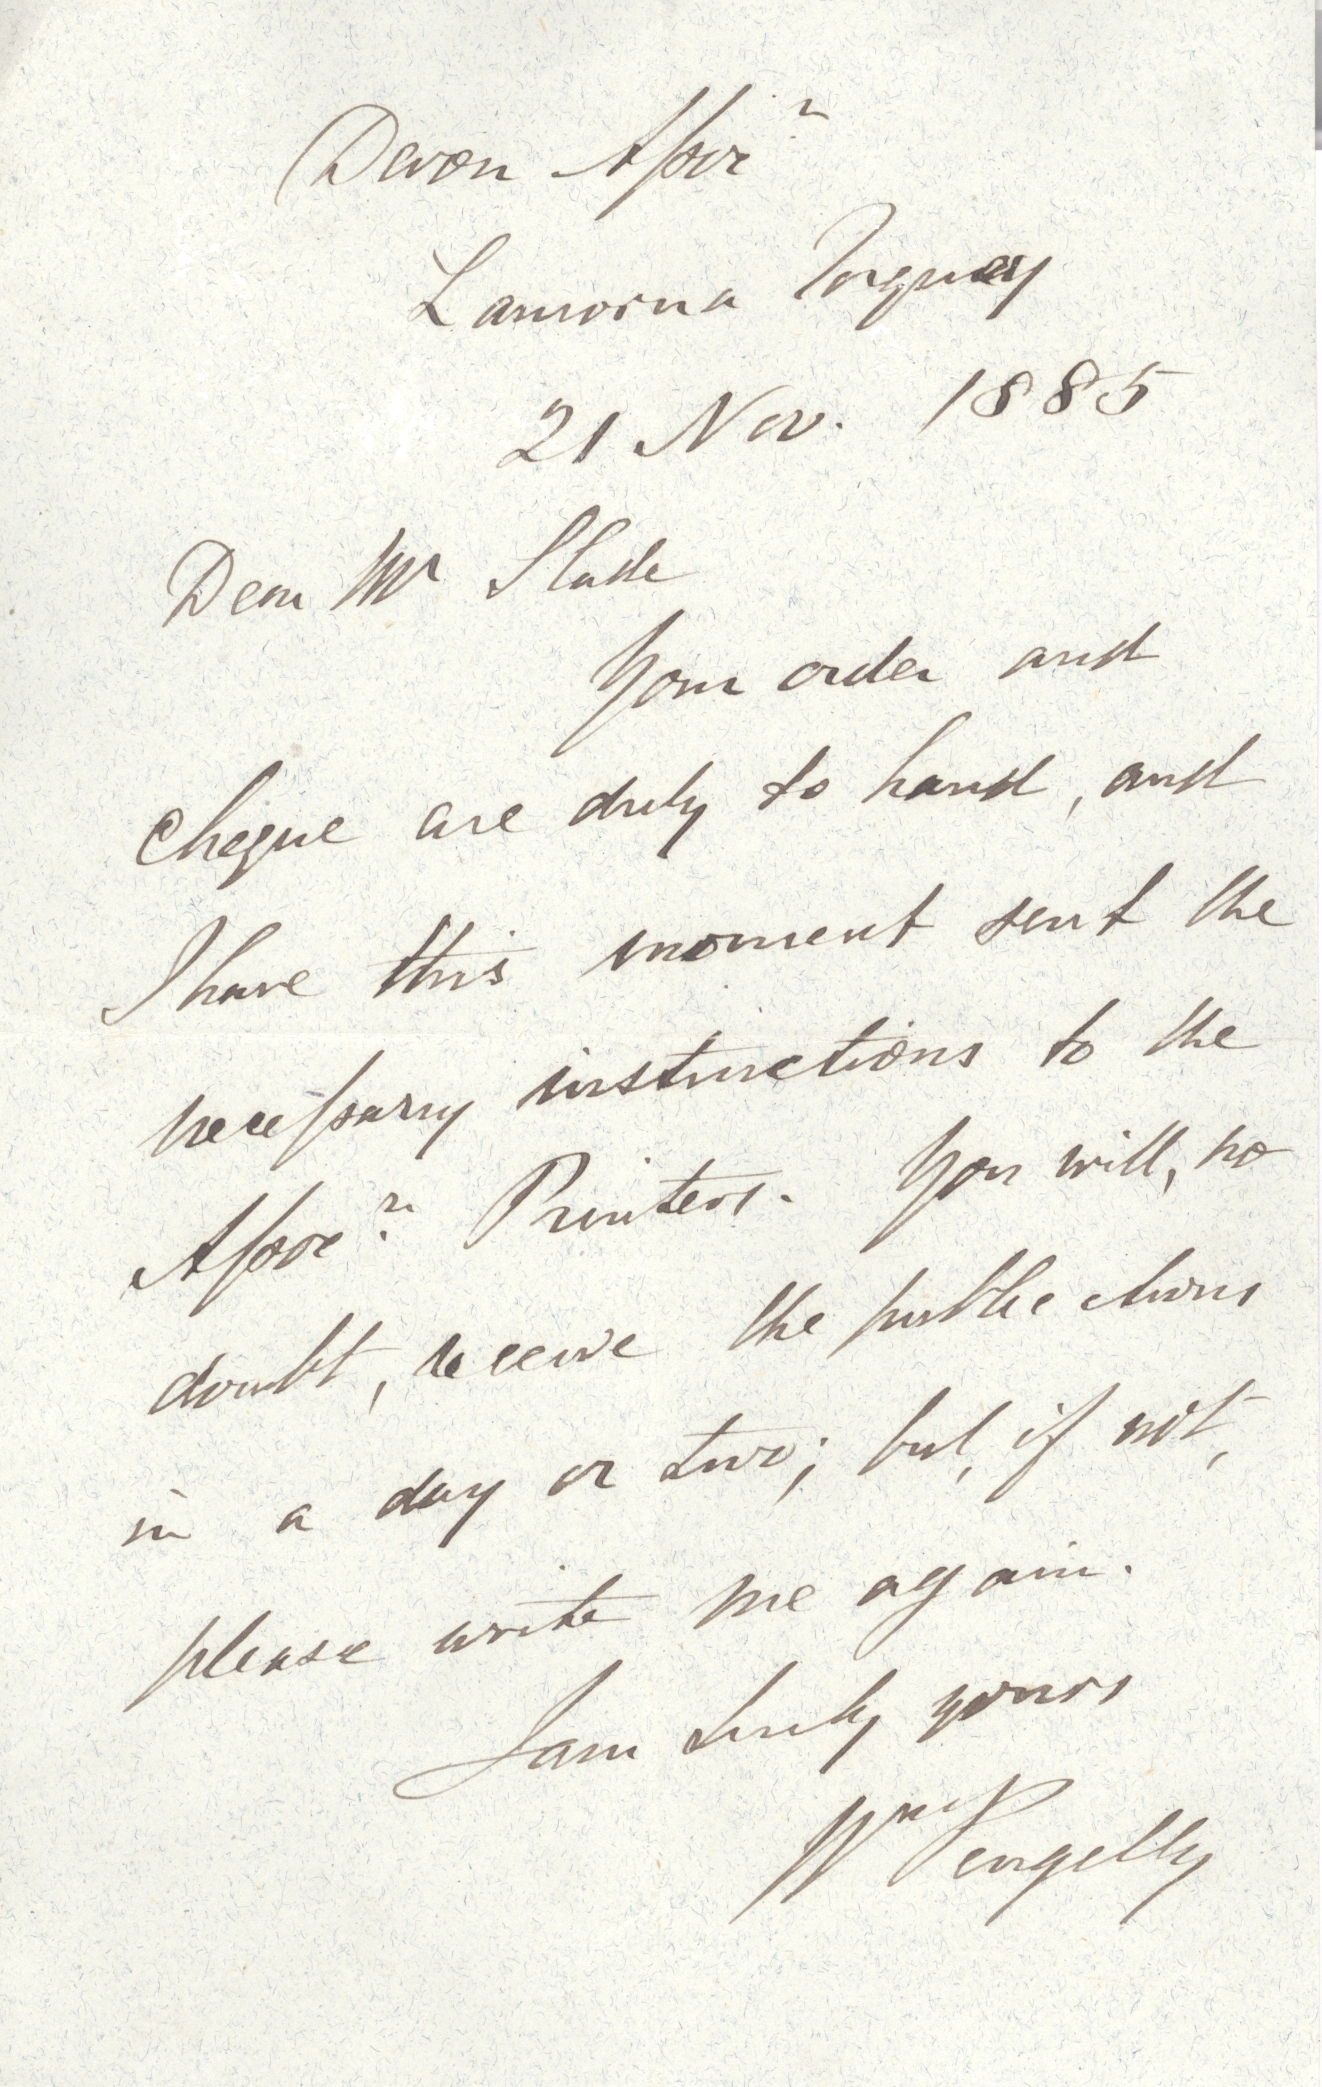 Devon Assocn
Lamorna Torquay
21 Nov. 1885
Dear Mr Slade
Your order and
cheque are duly to hand, and
I have this moment sent the
necessary instructions to the
Assocn Printers. You will, no
doubt, receive the publications
in a day or two; but, if not,
please write me again.
I am truly yours
Wm Pengelly